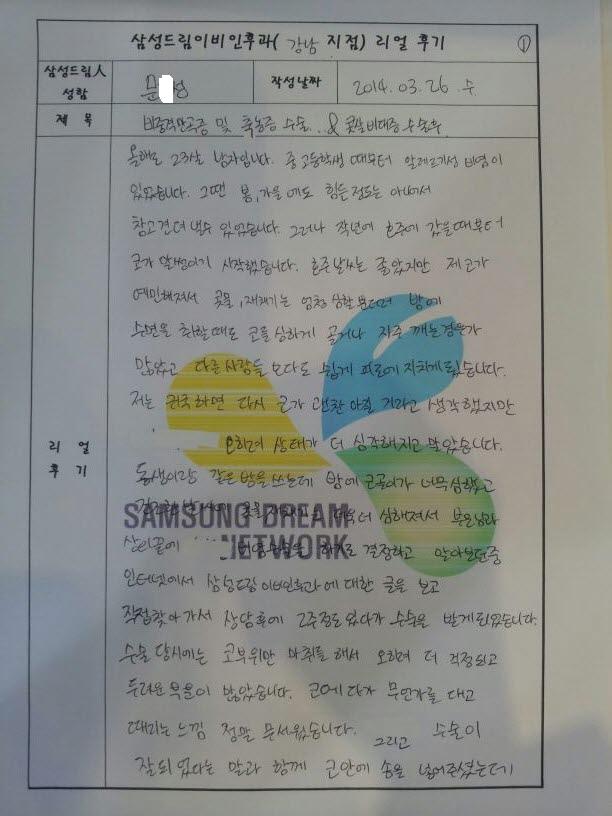 삼성드림이비인후과( 강남 지점) 리얼 후기 ①
삼성드림人 성함 문 성 작성날짜 2014. 03. 26 수
제 목 비중격만곡증 및 축농증 수술..& 콧살비대증 수술후
올해로 23살 남자입니다. 중고등학생 때부터 알레르기성 비염이
있었습니다. 그땐 봄, 가을에도 힘든정도는 아니어서
참고견뎌 낼수 있었습니다. 그러나 작년에 호주에 갔을때부터
코가 말썽이기 시작했습니다. 호주날씨는 좋았지만 제코가
예민해져서 콧물, 재채기는 엄청 심할뿐더러 밤에
수면을 취할때도 코를 심하게 골거나 자주 깨는경우가
많았고 다른사람들 보다도 쉽게 피로에 지치게됬습니다.
저는 귀국하면 다시 코가 괜찮아질 거라고 생각했지만
오히려 상태가 더 심각해지고 말았습니다.
리 얼 후 기
동생이랑 같은방을쓰는데 밤에 코골이가 너무심했고
콧물 더욱더 심해져서 부모님과
SAMSUNG DREAM
NETWORK
상의끝에 하기로 결정하고 알아보던중
인터넷에서 삼성드림 이비인후과에 대한 글을 보고
직접찾아가서 상담후에 2주정도있다가 수술을 받게되었습니다.
수술 당시에는 코부위만 마취를 해서 오히려 더 걱정되고
두려운 부분이 많았습니다. 코에다가 무언가를 대고
때리는느낌 정말 무서웠습니다. 그리고 수술이
잘되었다는 말과 함께 코안에 솜을 넣어주셨는데